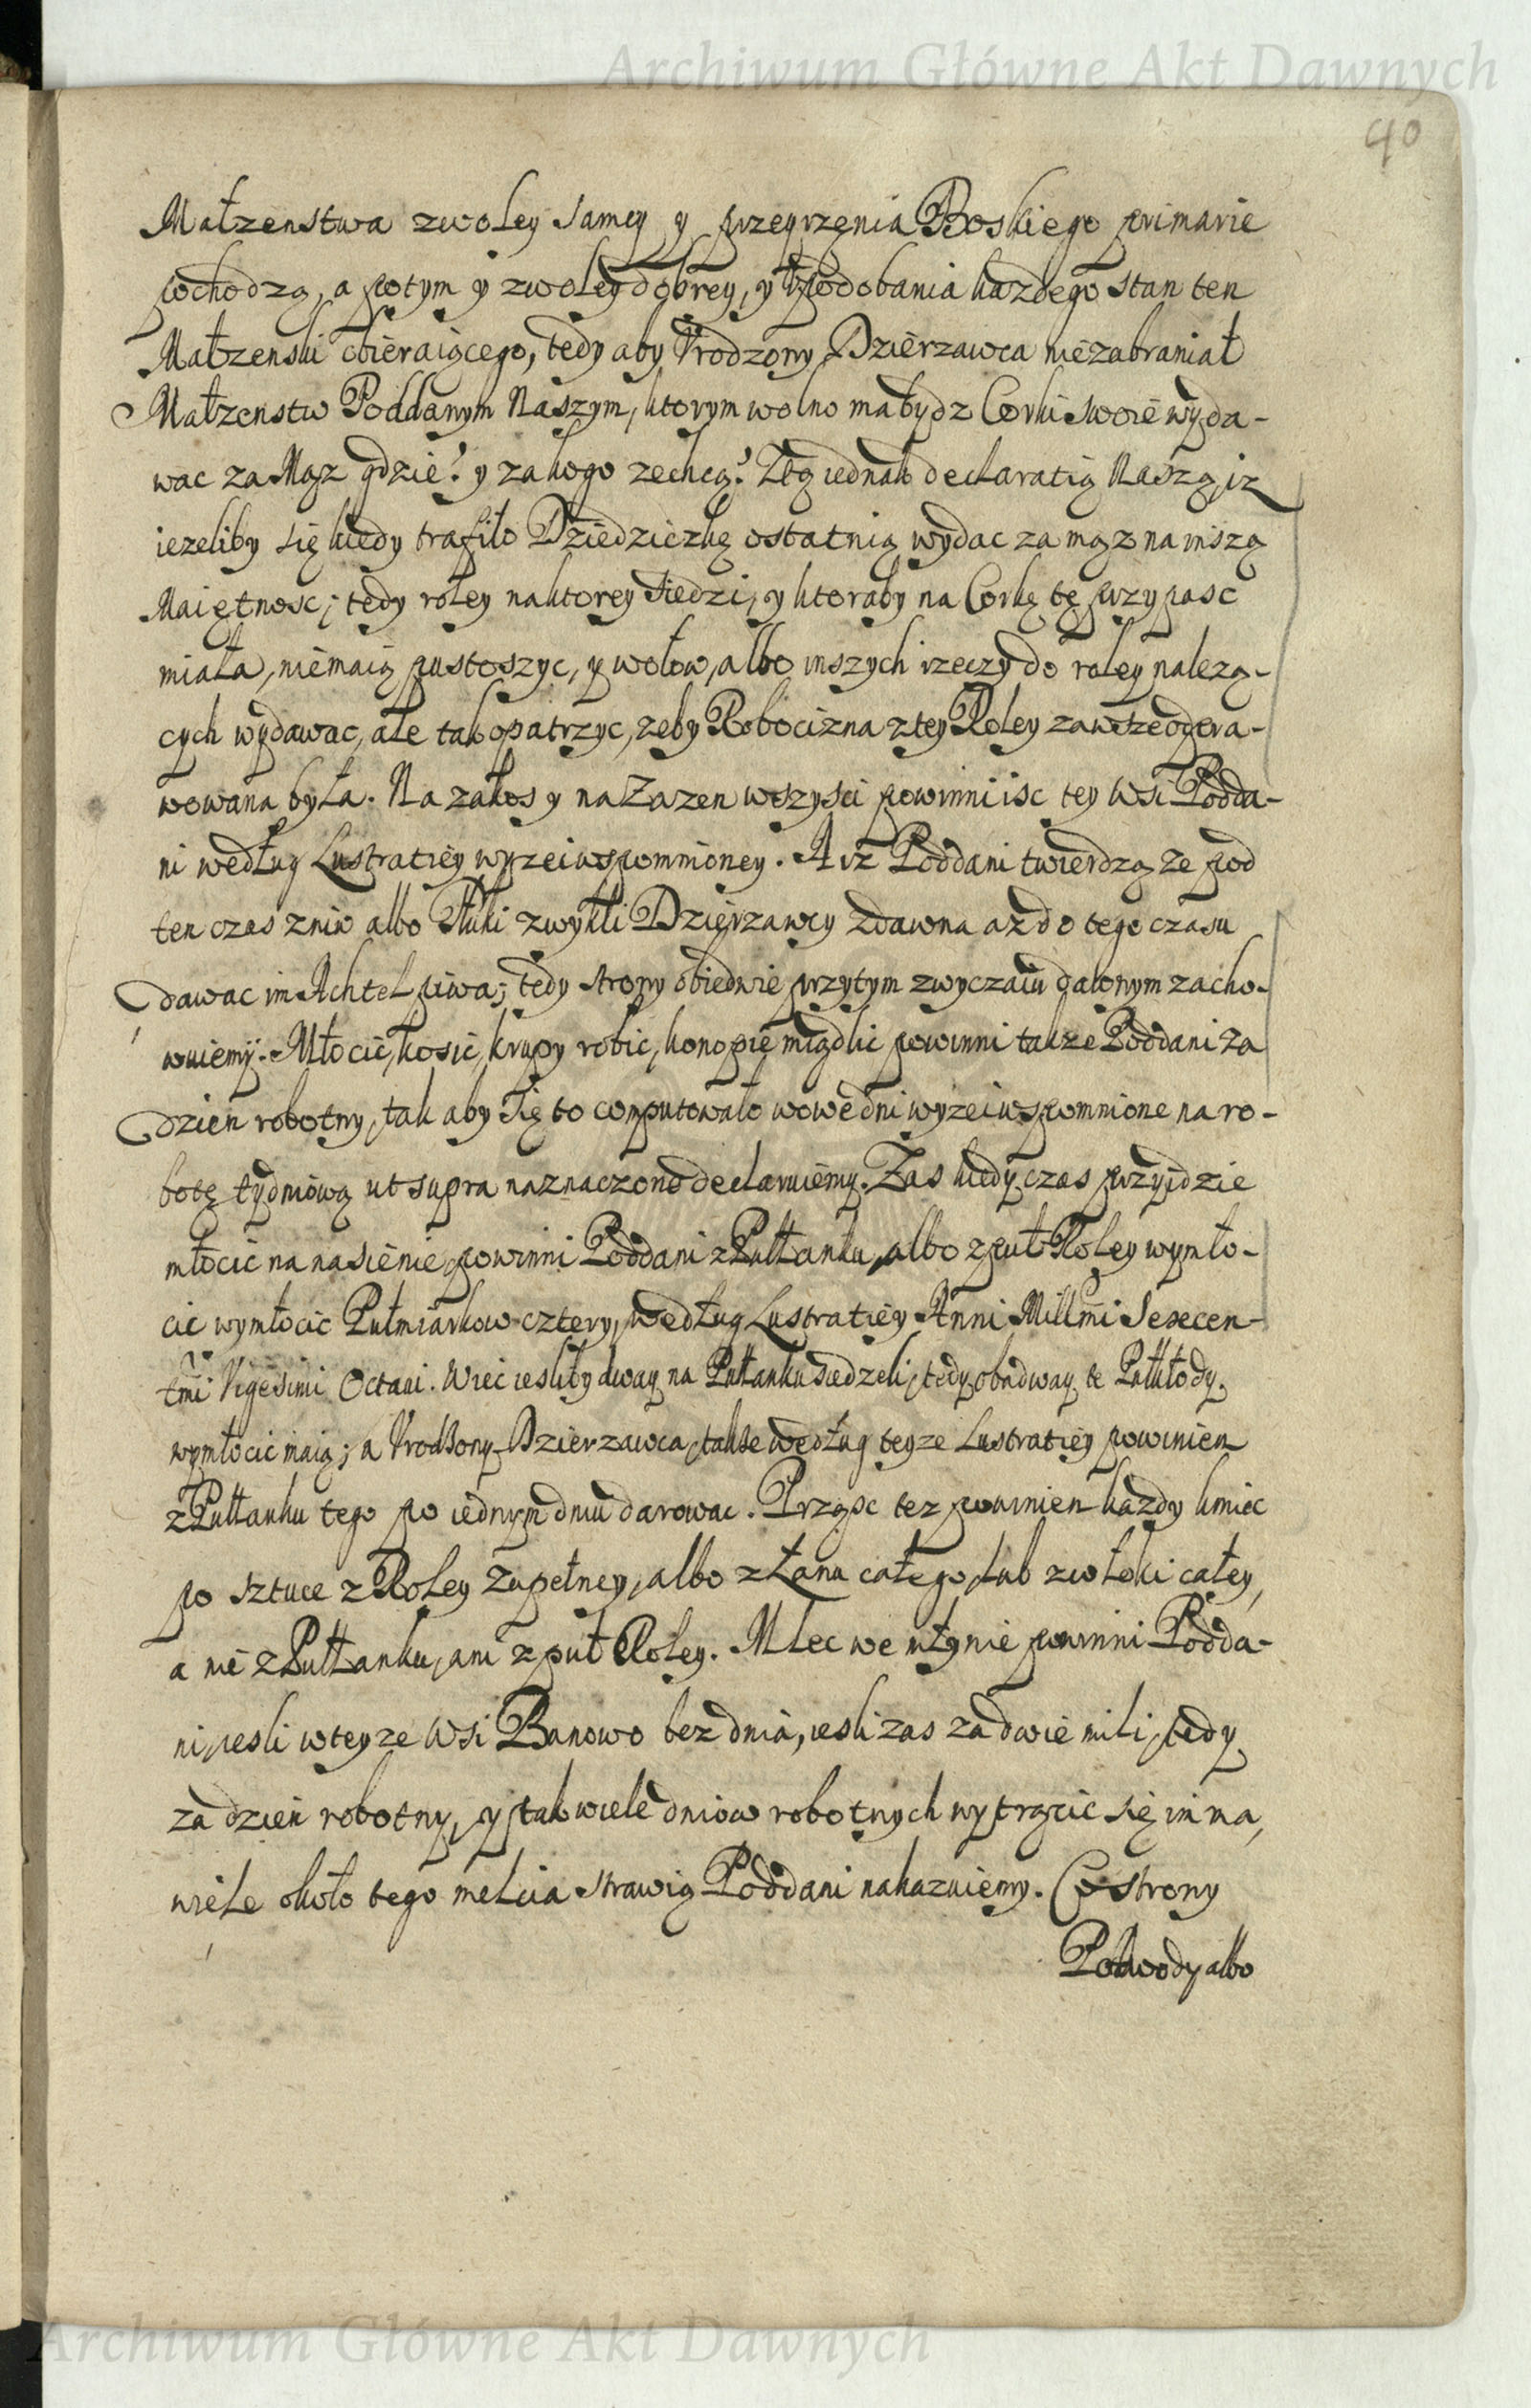 Archiwum Główne Akt Dawnych
40
Małzenstwa zwoley samey y przeyrzęnia Boskiego primarie
pochodzą, a potym y zwoley dobrey, y upodobania kazdego stan ten
Małzenski obieraiącego, tedy aby Vrodzony Dzierzawca niezabraniał
Małzenstw Poddanym Naszym, ktorym wolno ma bydz Corki swoie wyda-
wac za Mąz gdzie? y za kogo zechcą? Ztą iednak declaratią Naszą, iz
iezeliby się kiedy trafiło Dziedziczkę ostatnią wydac za mąz na inszą
Maiętnosc; tedy roley naktorey siedzi, y ktoraby na Corkę tę przypasc
miała, niemaią pustoszyc, y wołow, albo inszych rzeczy do roley nalezą-
cych wydawac, ale tak opatrzyc, zeby Robocizna ztey Roley zawsze odpra-
wowana była. Na zakos y na Zazen wszysci powinni isc tey Wsi Podda-
ni według Lustratiey wyzei wspomnioney. A iz Poddani twierdzą ze pod
ten czas zniw albo Tłuki zwykli Dzierzawcy zdawna az do tego czasu
dawac im Achtel piwa; tedy strony obiedwie przytym zwyczaiu dawnym zacho-
wuiemy. Młocic, kosic, krupy robic, konopie międlic powinni takze Poddani za
dzien robotny, tak aby się to computowało wowe dni wyzei wspomnione na ro-
botę tydniową ut supra naznaczone declaruiemy. Zas kiedy czas przyidzie
młocic na nasienie, powinni Poddani z Pułłanku, albo z puł Roley wymło-
cic wymłocic Pułmiarkow cztery, według Lustratiey Anni Millmi Sexcen-
tmi Vigesimi Octaui. Wiec iesliby dway na Pułłanku siedzeli, tedy obadway te Pułkłody
wymłocic maią; a Vrodzony Dzierzawca, takze według teyze Lustratiey powinien
z Pułłanku tego po iednym dniu darowac. Prząsc tez powinien kazdy kmiec
po sztuce z Roley Zupełney, albo z Łanu całego, lub zwłoki całey,
a nie z Pułłanku, ani z puł Roley. Mlec we młynie powinni Podda-
ni, iesli wteyze Wsi Banowo bez dnia, iesli zas za dwie mili, tedy
za dzien robotny, y tak wiele dniow robotnych wytrącic się im ma,
wiele około tego mełcia strawią Poddani nakazuiemy. Co strony
Podwody albo
Archiwum Główne Akt Dawnych